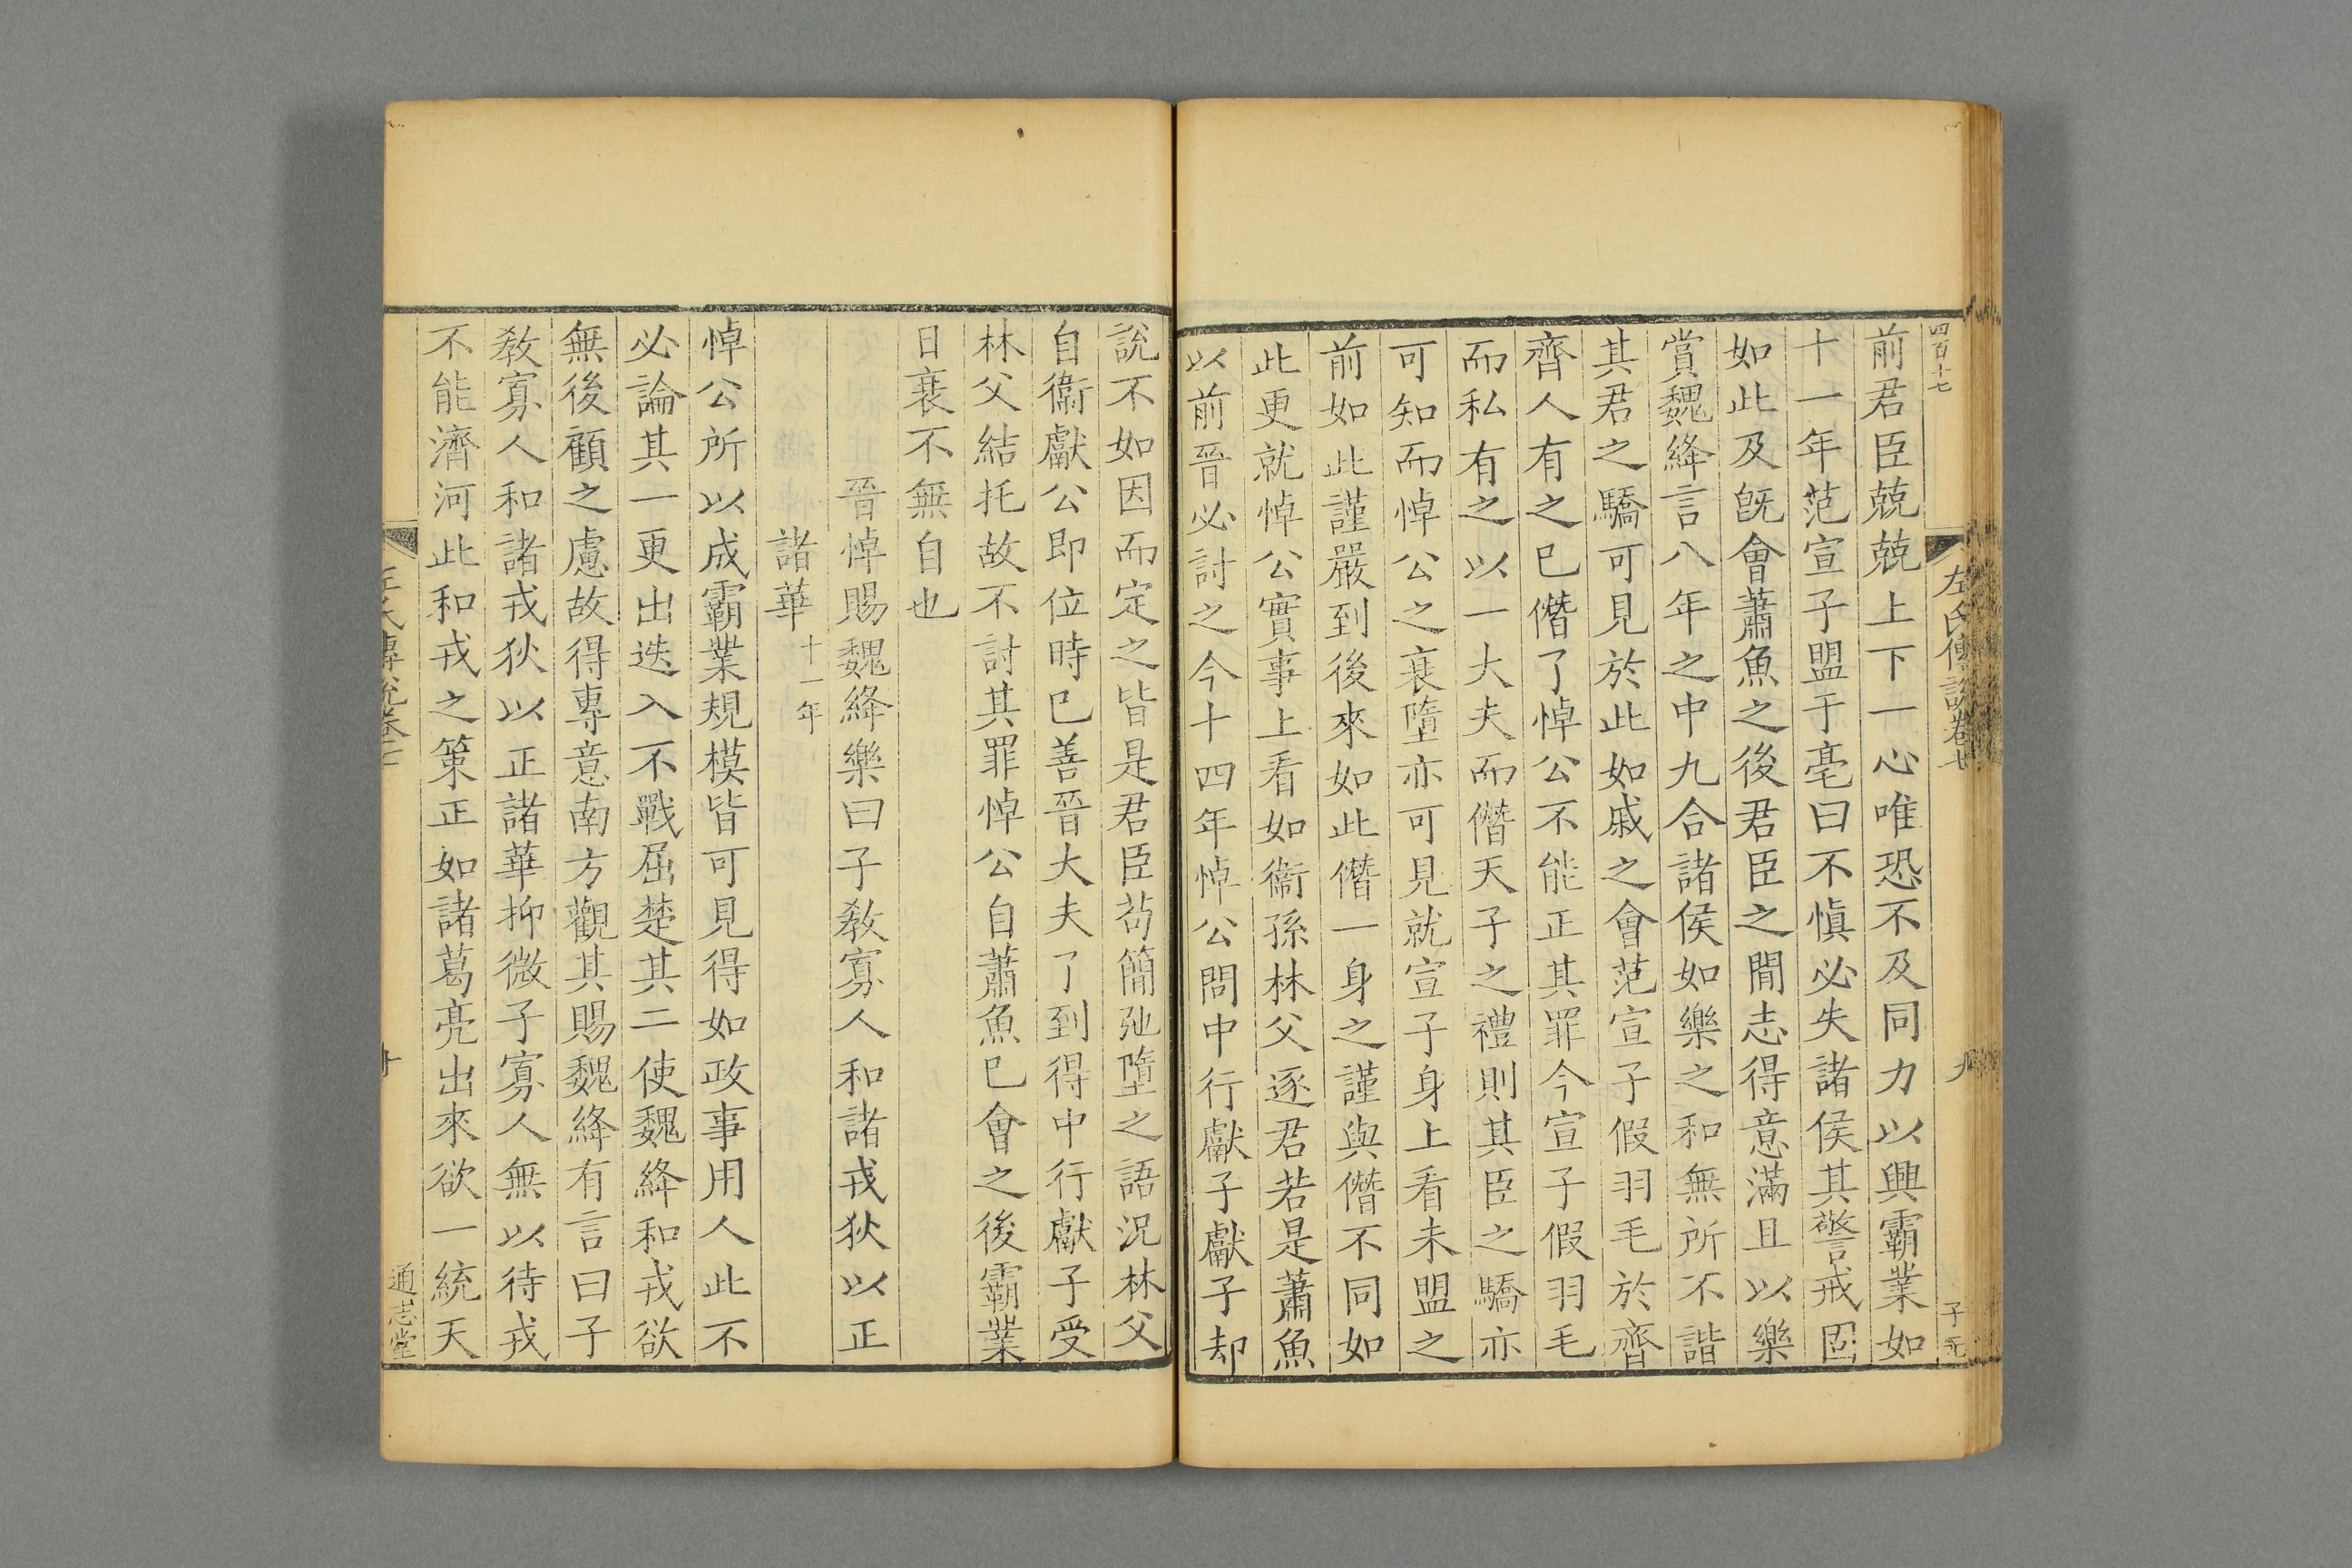 四百十七
左氏傳說卷七
九
前君臣兢兢上下一心唯恐不及同力以興霸業如
十一年范宣子盟于亳曰不愼必失諸侯其警戒固
如此及旣會蕭魚之後君臣之間志得意滿且以樂
賞魏絳言八年之中九合諸侯如樂之和無所不諧
其君之驕可見於此如戚之會范宣子假羽毛於齊
齊人有之已僭了悼公不能正其罪今宣子假羽毛
而私有之以一大夫而僭天子之禮則其臣之驕亦
可知而悼公之衰墮亦可見就宣子身上看未盟之
前如此謹嚴到後來如此僭一身之謹與僭不同如
此更就悼公實事上看如衞孫林父逐君若是蕭魚
以前晉必討之今十四年悼公問中行獻子獻子却
說不如因而定之皆是君臣苟簡弛墮之語況林父
自衞獻公即位時已善晉大夫了到得中行獻子受
林父結托故不討其罪悼公自蕭魚已會之後霸業
日衰不無自也
晉悼賜魏絳樂曰子敎寡人和諸戎狄以正
諸華十一年
悼公所以成霸業規模皆可見得如政事用人此不
必論其一更出迭入不戰屈楚其二使魏絳和戎欲
無後顧之慮故得專意南方觀其賜魏絳有言曰子
敎寡人和諸戎狄以正諸華抑微子寡人無以待戎
不能濟河此和戎之策正如諸葛亮出來欲一統天
左氏傳說卷七
十
通志堂